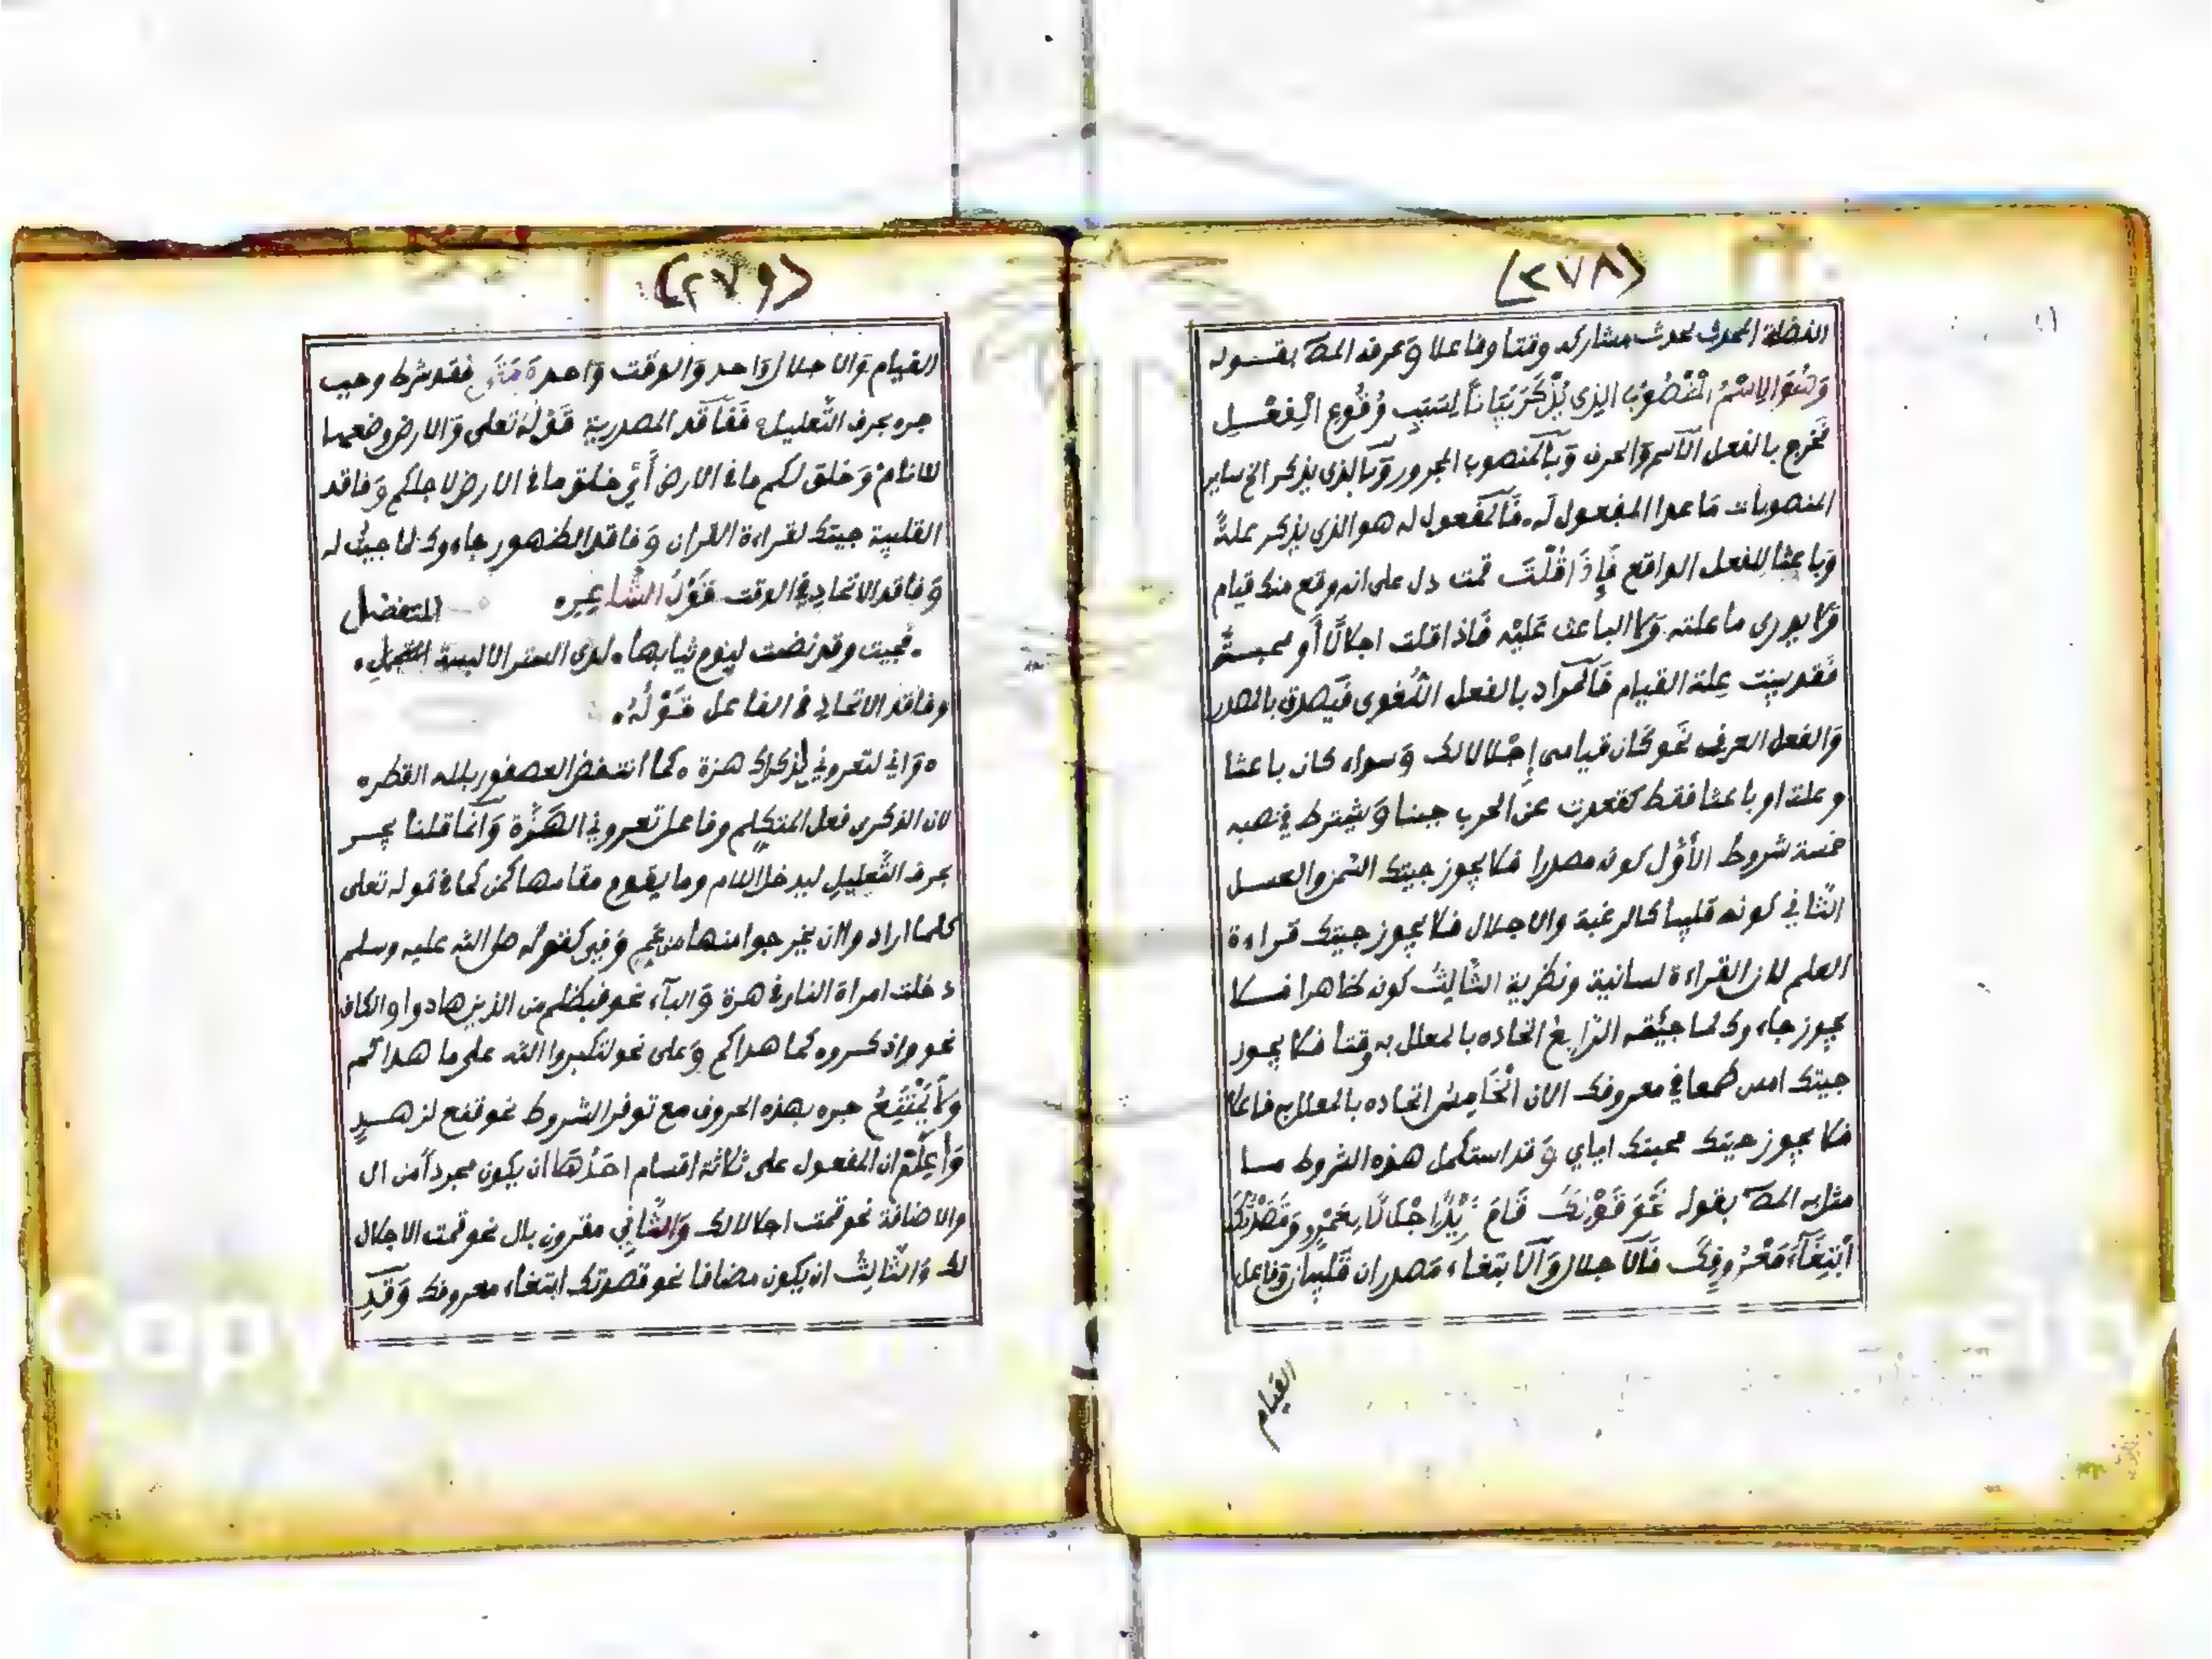 (٢٧٨)
الفضلة المحدث بحدث مشاركه وقتا وفاعلا وَعرفه المصـ بقوله
وَهُوَ الِاسْمُ الْمَنْصُوبُ الذِي يُذْكَرُ بَيَانًا لِسَبَبِ وُقُوعِ الْفِعْلِ
فخرج بالفعل الآسم وَالحرف وَبآلمنصوب المجرور وَبآلذي يذكر الخ ساير
المنصوبات مَا عدا المفعول لَه فَآلمفعول له هو الذي يذكر علةً
وَباعِثًا لِلفعل الواقع فَإِذَا قُلْتَ قمت دل على انه وقع منك قيام
وَلا يدرى ما علته وَلا الباعث عَلَيْه فَاذا قلت اجلالًا أو محبـةً
فَقد بينت عِلة القيام فَآلمرَاد بالفعل اللّغوي فَيصدق بالمصدر
وَالفعل العرفي نَحو كَان قيامى إِجْلالا لك وَسواء كان باعثا
وعلة او باعثا فقط كقعدت عن الحرب جبنا وَيُشترط في نصبه
خمسة شروط الأَوَّل كونه مصدرا فلا يجوز جيتك السمن والعسل
الثَّاني كونه قلبيا كالرغبة والاجلال فلا يجوز جيتك قراءة
العلم لان القراءة لسانية ونظرية الثَّالِثُ كونه ظاهرا فلا
يجوز جاء وكلما جيئته الرَّابِعُ اتحاده بالمعلل به وقتا فلا يجوز
جيتك امس طمعا في معروفك الان الْخَامِسُ اتحاده بالمعلل به فاعلا
فلا يجوز جيتك محبتك اياي وَقد استكمل هذه الشروط مـا
مثل به المصـ بقوله نَحْوَ قَوْلِكَ قَامَ زَيْدٌ اِجْلَالًا لِعَمْرٍو وَقَصَدْتُكَ
ابْتِغَآءَ مَعْرُوفِكَ فَآلا جلال وَآلابتغاء مَصدران قَلبيان وَفاعل
القيام
(٢٧٩)
القيام وَالاجلال وَاحد وَالوَقت وَاحد فقد شرط وجب
جره بحرف التَّعليل فَفَاقد المصدرية قَوْلُهُ تعلى وَالارض وضعها
للانام وَخلق لكم ما في الارض أَيْ خلق ما في الارض لاجلكم وَفاقد
القلبية جيتك لقراءة القران وَفاقد الظهور جاء وكلما جيئت له
وَفاقد الاتحاد في الوقت قَوْلُ الشَّاعِرِ
المتفضل
. فجيت وقد نضت لنوم ثيابها . لدى الستر الا لبسة
وفاقد الاتحاد في الفاعل قَوْلُهُ .
ه وَاني لتعروني لذكراك هزة ه كما انتفض العصفور بلله القطر ه
لان الذكرى فعل المتكلم وفاعل تعروني الهَزَّة وَانما قلنا يجـر
بحرف التَّعليل ليدخل اللام وما يقوم مقامها كمن كما في قوله تعلى
كلما ارادوا ان يخرجوا منها من غم وَفي كقوله صلى الله عليه وسلم
دخلت امراة النار في هرة وَالبآء نحو فبظلم من الذين هادوا والكاف
نحو واذكروه كما هداكم وَعلى نحو لتكبروا الله على ما هداكم
وَلَا يَمْتَنِعُ جره بهذه الحروف مع توفر الشروط نحو قنع لزهـدٍ
وَأعلَمْ ان المفعول على ثلاثة اقسام احَدُهَا ان يكون مجرداً من ال
والاضافة نحو قمت اجلالا لك وَالثَّاني مقرون بال نحو قمت الاجلال
لك وَالثَّالِثُ ان يكون مضافا نحو قصدتك ابتغاء معروفك وَقَدِ